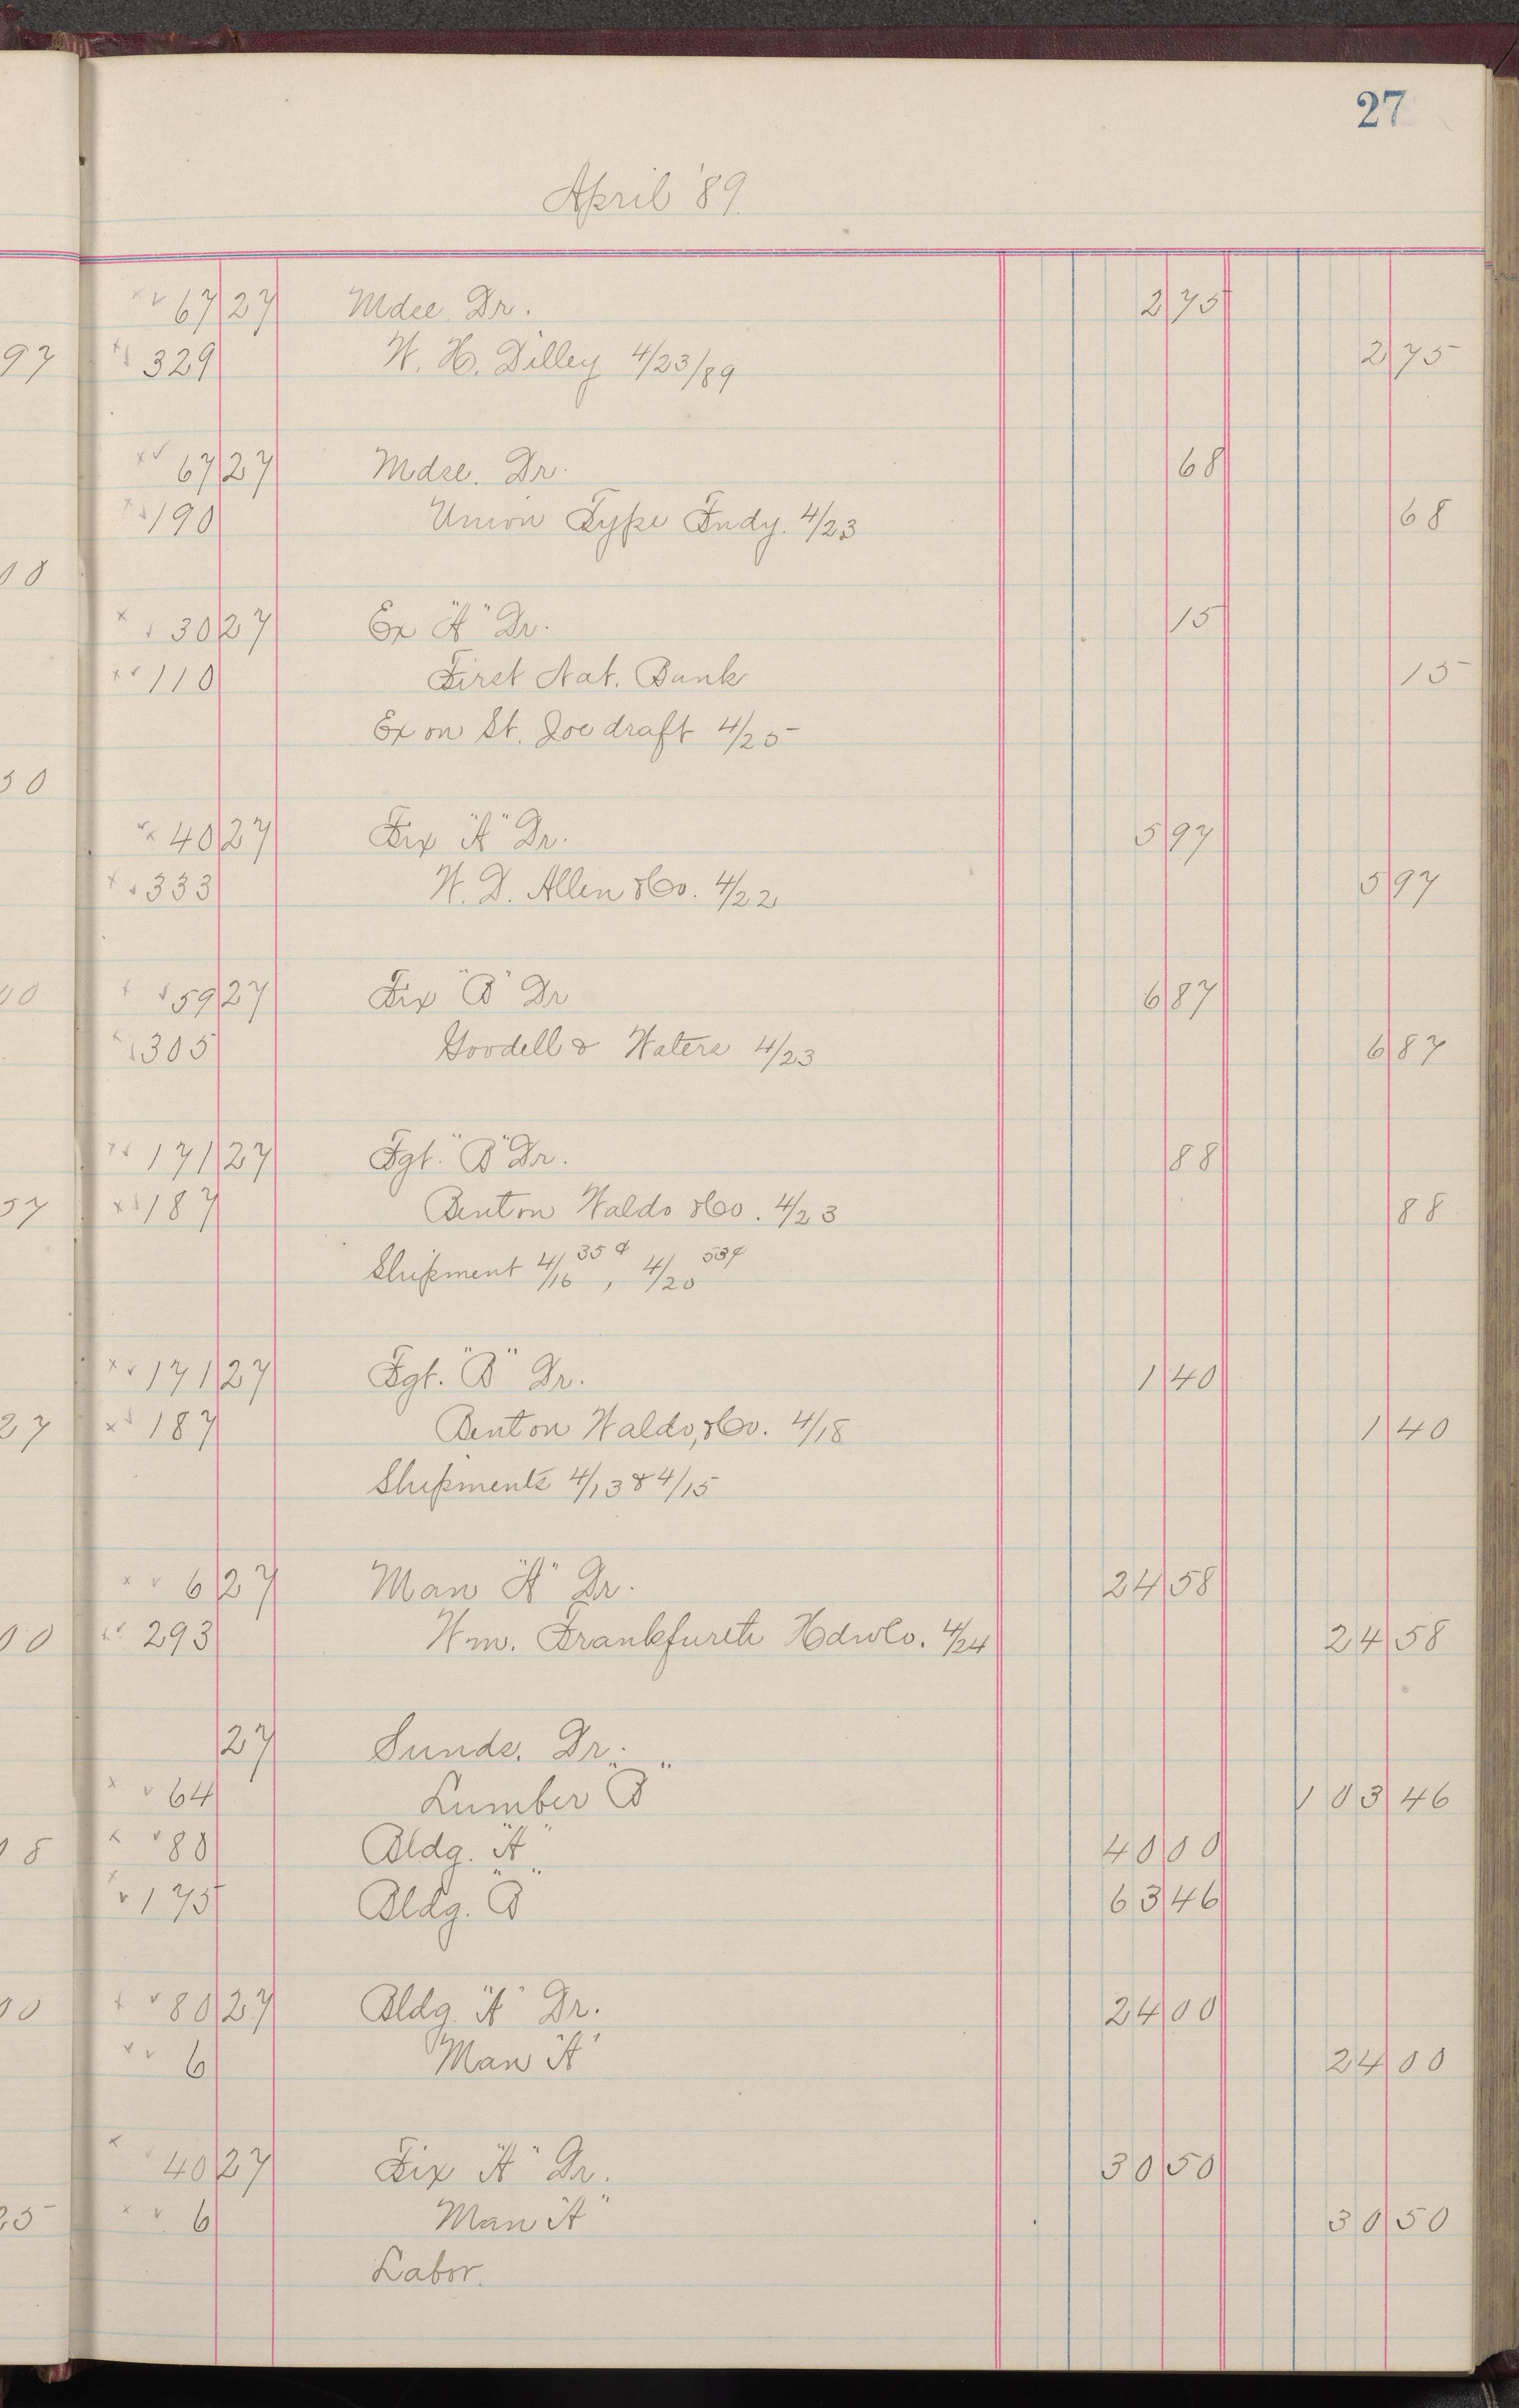 27
April '89.
67 27 Mdse Dr. 2 75
97 329 W. H. Dilley 4/23/89 2 75
67 27 Mdse. Dr. 68
190 Union Type Fndy. 4/23 68
00
30 27 Ex "A" Dr. 15
110 First Nat. Bank 15
Ex on St. Joe draft 4/25
50
40 27 Fix "A" Dr. 5 97
333 W. D. Allen & Co. 4/22 5 97
00 59 27 Fix "B" Dr 6 87
305 Goodell & Waters 4/23 6 87
171 27 Fgt. "B" Dr. 88
57 187 Benton Waldo & Co. 4/23 88
Shipment 4/16 35¢, 4/20 53¢
171 27 Fgt. "B" Dr. 1 40
27 187 Benton Waldo, & Co. 4/18 1 40
Shipments 4/13 & 4/15
6 27 Man "A" Dr. 24 58
00 293 Wm. Frankfurth Hdw Co. 4/24 24 58
27 Sunds. Dr.
64 Lumber "B" 103 46
80 Bldg. "A" 40 00
175 Bldg. "B" 63 46
00 80 27 Bldg. "A" Dr. 24 00
6 Man "A" 24 00
40 27 Fix "A" Dr. 30 50
25 6 Man "A" 30 50
Labor.